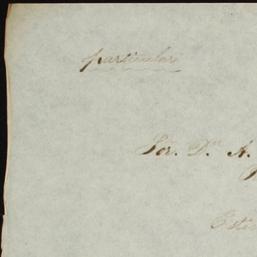 particular
Sor. Dn. A.